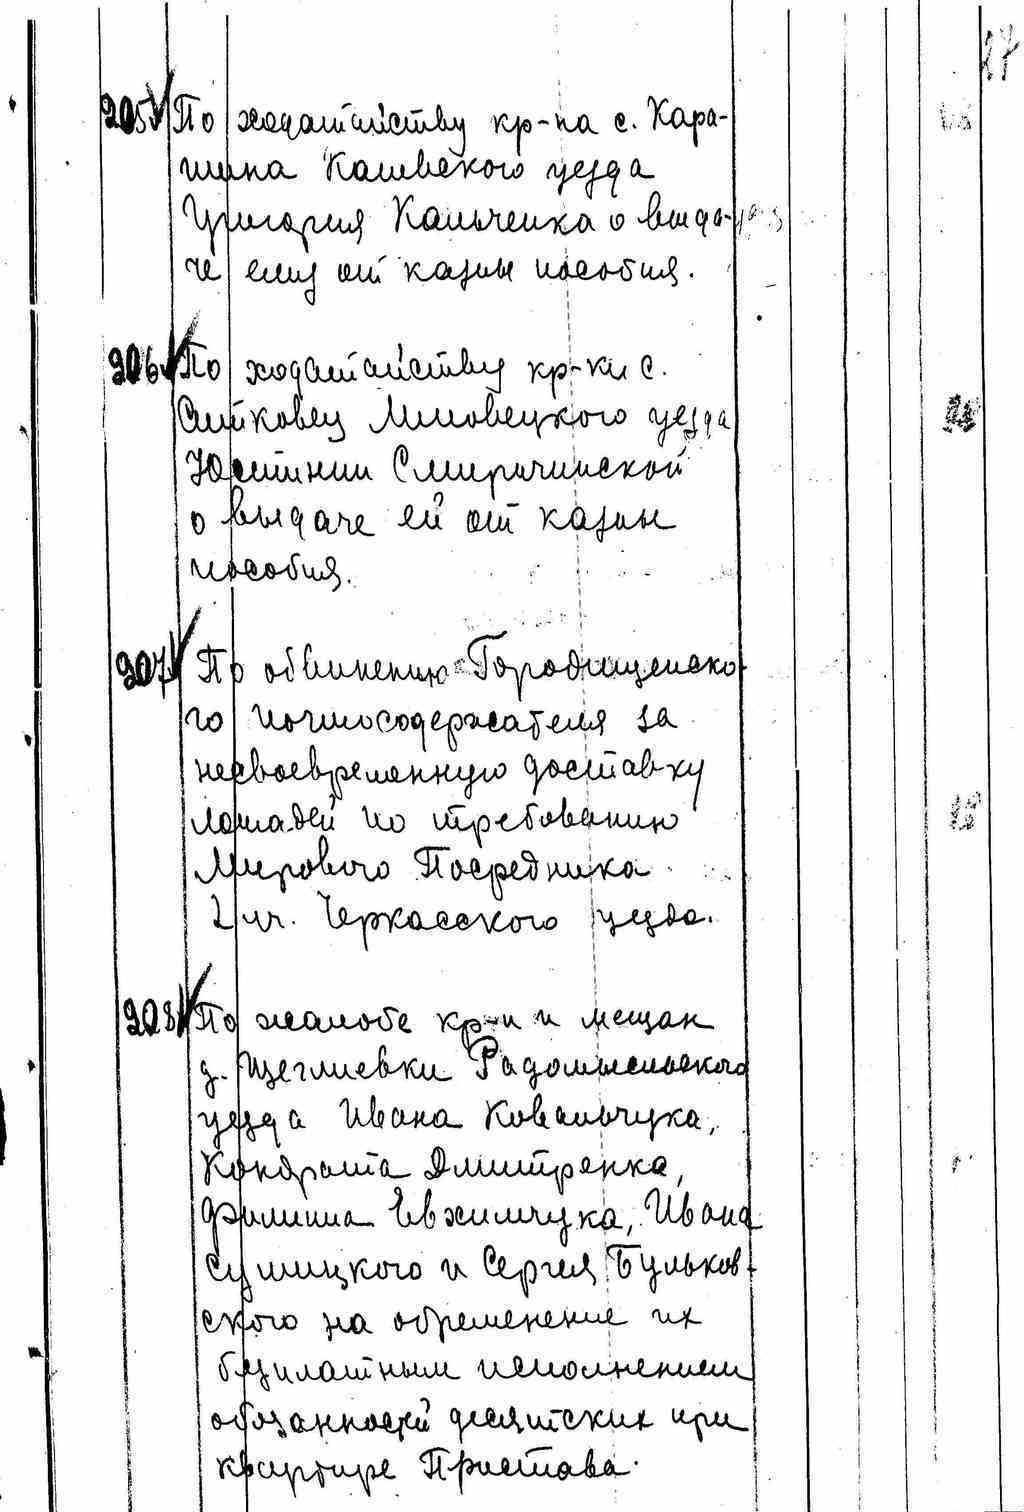 27
205 По ходатайству кр-на с. Кара-
шина Каневского уезда
Григория Кальченка о выда-
че ему от казны пособия.
206 По ходатайству кр-ки с.
Ситковец Липовецкого уезда
Юстинии Смирчинской
о выдаче ей от казны
пособия.
207 По обвинению Городищенско-
го почтосодержателя за
несвоевременную доставку
лошадей по требованию
Мирового Посредника
2 уч. Черкасского уезда.
208 По жалобе кр-н и мещан
д. Щеглиевки Радомысльского
уезда Ивана Ковальчука,
Кондрата Дмитренка,
Филиппа Евхимчука, Ивана
Сушицкого и Сергия Бульков-
ского на обременение их
безплатным исполнением
обязанностей десятских при
квартире Пристава.